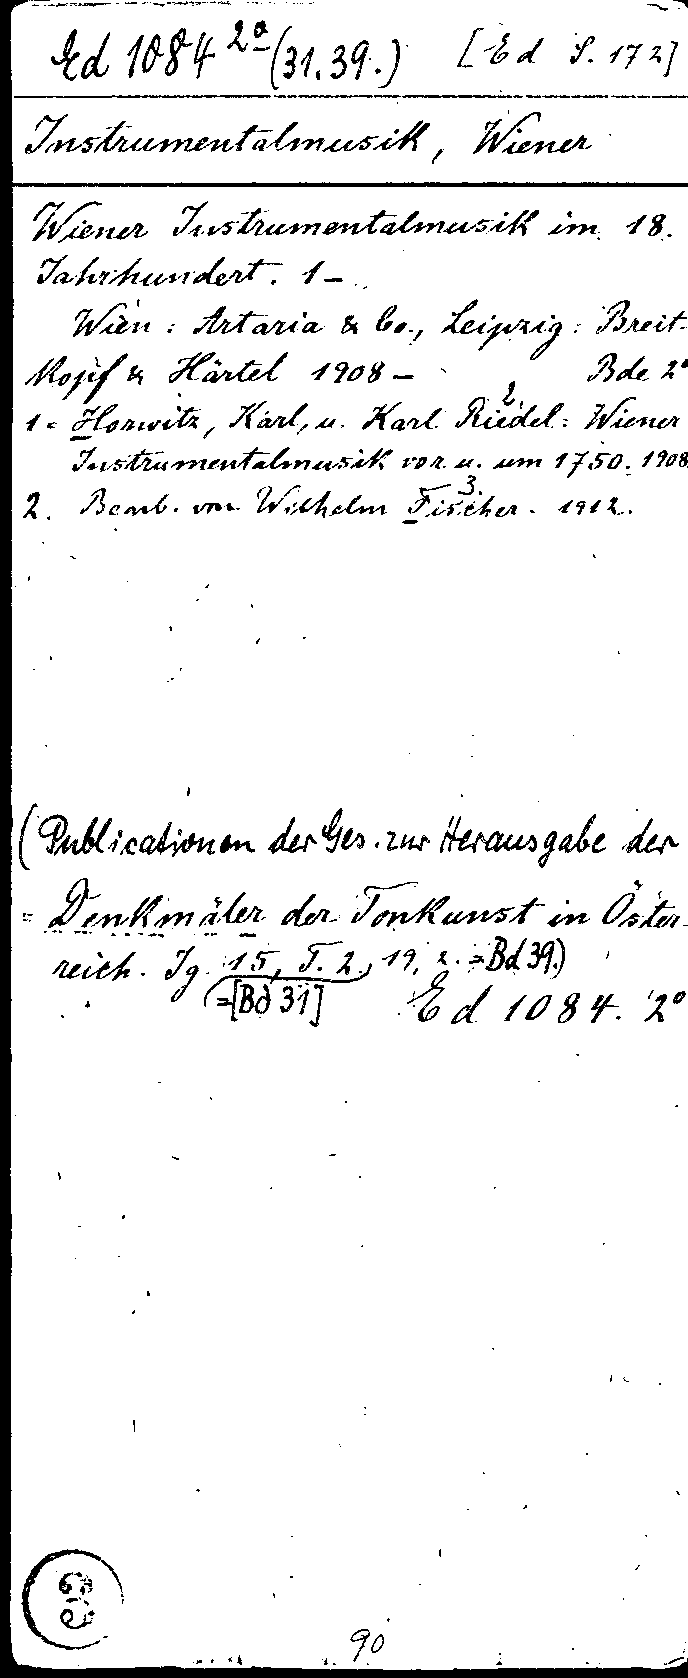 Ed 1084 2° (31.39.) [Ed S. 172]
Instrumentalmusik, Wiener
Wiener Instrumentalmusik im 18.
Jahrhundert. 1 –
Wien: Artaria & Co., Leipzig: Breit-
kopf & Härtel 1908 – Bde 2°
2
1 = Horwitz, Karl, u. Karl Riedel: Wiener
Instrumentalmusik vor u. um 1750. 1908
3.
2. Bearb. von Wilhelm Fischer. 1912.
(Publicationen der Ges. zur Herausgabe der
= Denkmäler der Tonkunst in Öster-
reich. Jg. 15, T. 2, 19, 2. = Bd 39.)
(= [Bd 31] Ed 1084. 2°
90